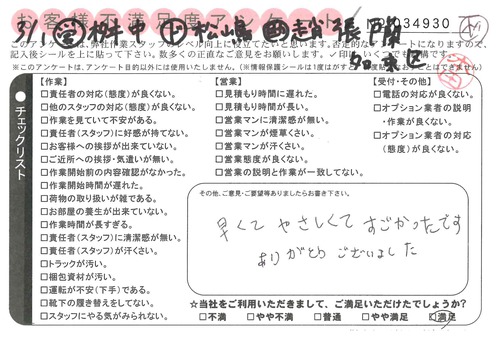 お客様満足度アンケート
034930
3/1
このアンケートは、弊社作業スタッフのレベル向上に役立てたいと思います。
記入後シールを上に貼って下さい。数多くの正直なご意見をお願いします。
※このアンケートは、アンケート目的以外には使用いたしません。
チェックリスト
【作業】
□責任者の対応(態度)が良くない。
□他のスタッフの対応(態度)が良くない。
□作業を見ていて不安がある。
□責任者(スタッフ)に好感が持てない。
□お客様への挨拶が出来ていない。
□ご近所への挨拶・気遣いが無い。
□作業開始前の内容確認がなかった。
□作業開始時間が遅れた。
□荷物の取り扱いが雑である。
□お部屋の養生が出来ていない。
□作業時間が長すぎる。
□責任者(スタッフ)に清潔感が無い。
□責任者(スタッフ)が汗くさい。
□トラックが汚い。
□梱包資材が汚い。
□運転が不安(下手)である。
□靴下の履き替えをしてない。
□スタッフにやる気がみられない。
【営業】
□見積もり時間に遅れた。
□見積もり時間が長い。
□営業マンに清潔感が無い。
□営業マンが煙草くさい。
□営業マンが汗くさい。
□営業態度が良くない。
□営業の説明と作業が一致してない。
【受付・その他】
□電話の対応が良くない。
□オプション業者の説明
・作業が良くない。
□オプション業者の対応
(態度)が良くない。
その他、ご意見・ご要望等ありましたらお書き下さい。
早くて やさしくて すごかったです
ありがとう ございました
☆当社をご利用いただきまして、ご満足いただけたでしょうか?
□不満 □やや不満 □普通 □やや満足 □満足